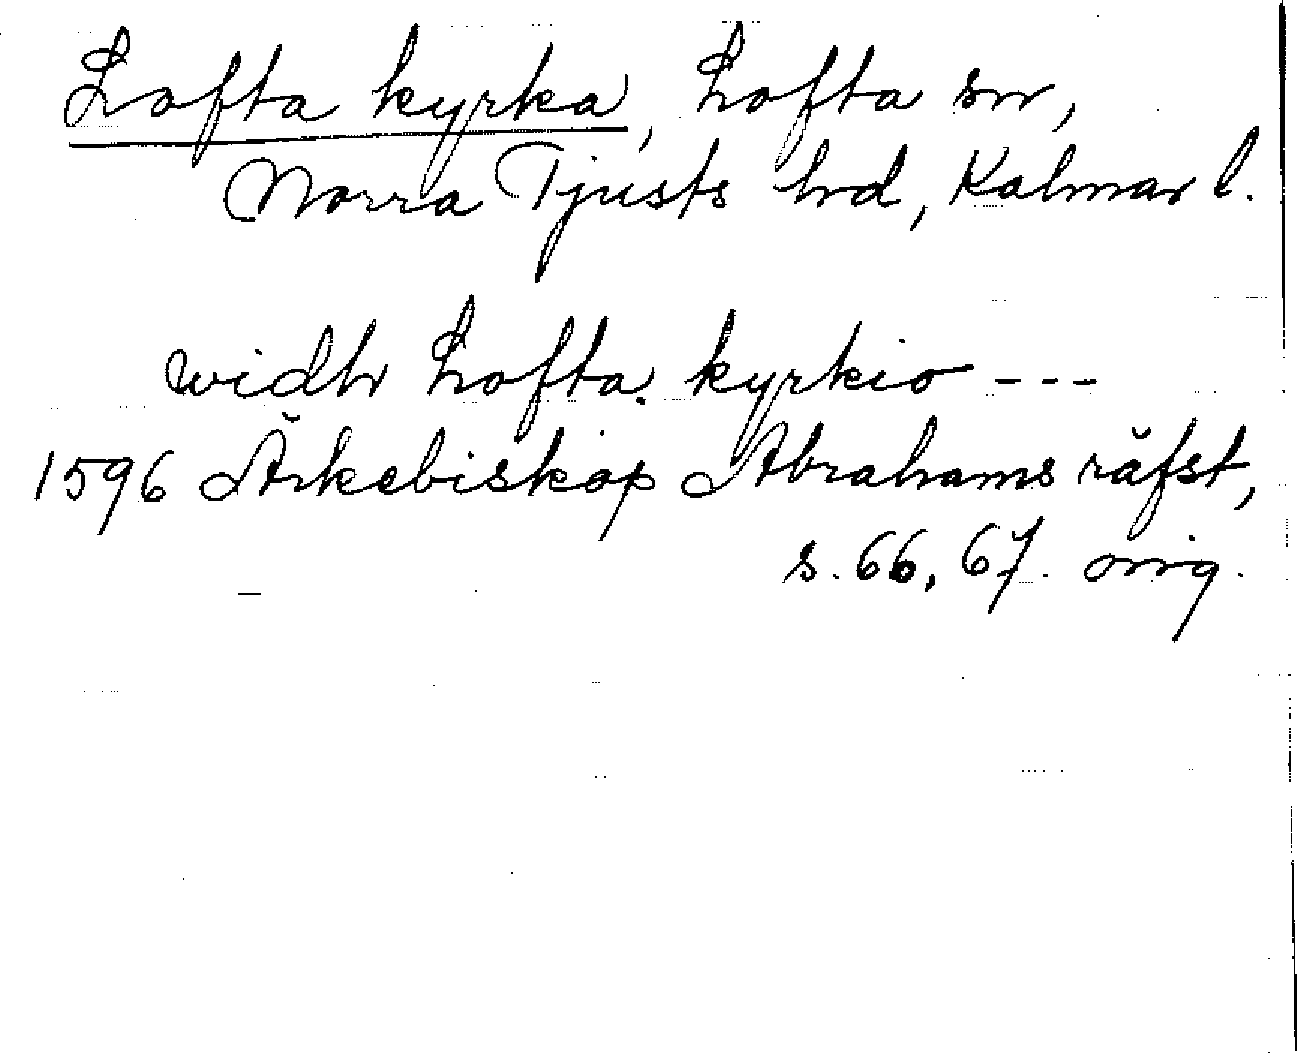 Lofta kyrka, Lofta sn,
Norra Tjusts hd, Kalmar l.
widh Lofta kyrkio ---
1596 Ärkebiskop Abrahams räfst,
s. 66, 67. orig.